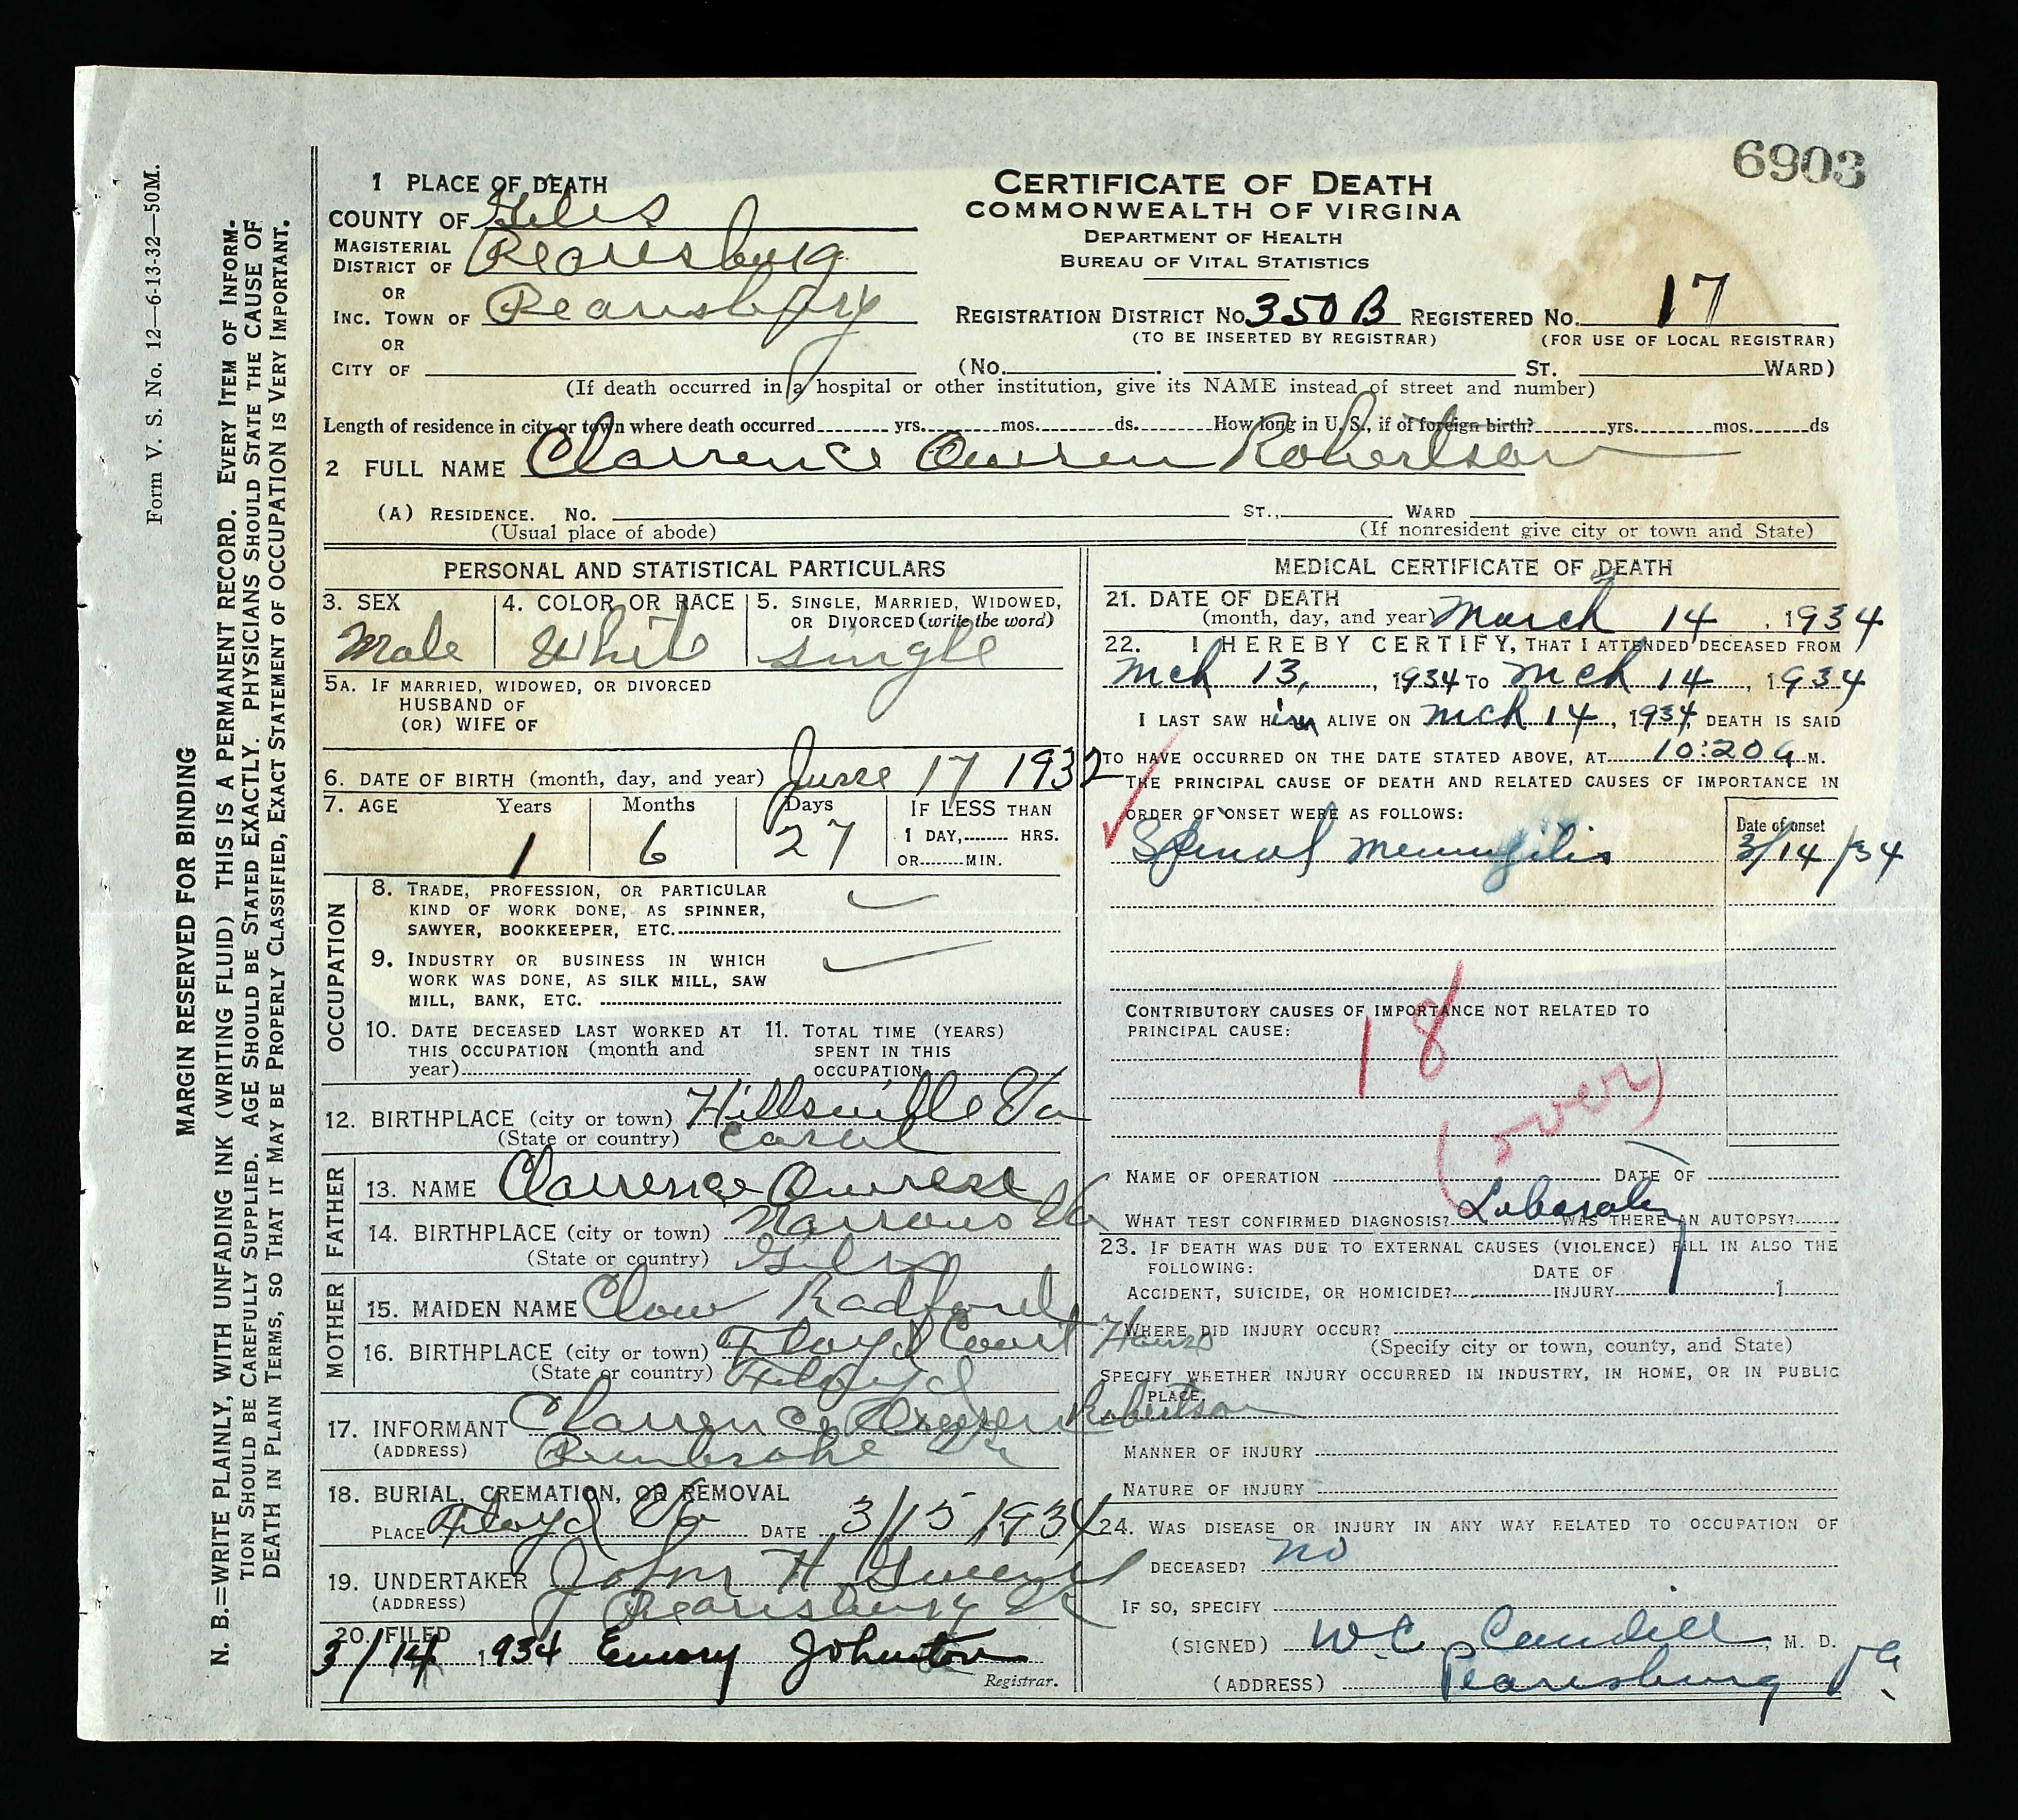 6903
Form V. S. No. 12—6-13-32—50M.
MARGIN RESERVED FOR BINDING
N. B.=WRITE PLAINLY, WITH UNFADING INK (WRITING FLUID) THIS IS A PERMANENT RECORD. EVERY ITEM OF INFORM-
TION SHOULD BE CAREFULLY SUPPLIED. AGE SHOULD BE STATED EXACTLY. PHYSICIANS SHOULD STATE THE CAUSE OF
DEATH IN PLAIN TERMS, SO THAT IT MAY BE PROPERLY CLASSIFIED, EXACT STATEMENT OF OCCUPATION IS VERY IMPORTANT.
CERTIFICATE OF DEATH
COMMONWEALTH OF VIRGINA
DEPARTMENT OF HEALTH
BUREAU OF VITAL STATISTICS
1 PLACE OF DEATH
COUNTY OF Giles
MAGISTERIAL DISTRICT OF Pearisburg
OR
INC. TOWN OF Pearisburg
REGISTRATION DISTRICT No. 350 B REGISTERED No. 17
(TO BE INSERTED BY REGISTRAR) (FOR USE OF LOCAL REGISTRAR)
OR
CITY OF (No. ST. WARD)
(If death occurred in a hospital or other institution, give its NAME instead of street and number)
Length of residence in city or town where death occurred yrs. mos. ds. How long in U. S., if of foreign birth? yrs. mos. ds
2 FULL NAME Clarence Owen Robertson
(A) RESIDENCE. No. ST., WARD
(Usual place of abode) (If nonresident give city or town and State)
PERSONAL AND STATISTICAL PARTICULARS
3. SEX 4. COLOR OR RACE 5. SINGLE, MARRIED, WIDOWED,
OR DIVORCED (write the word)
Male White single
5A. IF MARRIED, WIDOWED, OR DIVORCED
HUSBAND OF
(OR) WIFE OF
6. DATE OF BIRTH (month, day, and year) June 17 1932
7. AGE Years Months Days IF LESS THAN
1 DAY, HRS.
1 6 27
OR MIN.
OCCUPATION
8. TRADE, PROFESSION, OR PARTICULAR
KIND OF WORK DONE, AS SPINNER,
SAWYER, BOOKKEEPER, ETC.
9. INDUSTRY OR BUSINESS IN WHICH
WORK WAS DONE, AS SILK MILL, SAW
MILL, BANK, ETC.
10. DATE DECEASED LAST WORKED AT
THIS OCCUPATION (month and
year)
11. TOTAL TIME (YEARS)
SPENT IN THIS
OCCUPATION
12. BIRTHPLACE (city or town) Hillsville Va
(State or country)
FATHER
13. NAME Clarence
14. BIRTHPLACE (city or town) Narrows Va
(State or country)
MOTHER
15. MAIDEN NAME Radford
16. BIRTHPLACE (city or town) Floyd Court House
(State or country) Floyd
17. INFORMANT Clarence Robertson
(ADDRESS) Pembroke Va
18. BURIAL, CREMATION, OR REMOVAL
PLACE Floyd Va DATE 3/15 1934
19. UNDERTAKER John H
(ADDRESS) Pearisburg Va
20. FILED
3/14 1934 Emory Johnston
Registrar.
MEDICAL CERTIFICATE OF DEATH
21. DATE OF DEATH
(month, day, and year) March 14, 1934
22. I HEREBY CERTIFY, THAT I ATTENDED DECEASED FROM
Mch 13, 1934 TO Mch 14, 1934
I LAST SAW Him ALIVE ON Mch 14, 1934, DEATH IS SAID
TO HAVE OCCURRED ON THE DATE STATED ABOVE, AT 10:20 a M.
THE PRINCIPAL CAUSE OF DEATH AND RELATED CAUSES OF IMPORTANCE IN
ORDER OF ONSET WERE AS FOLLOWS:
Date of onset
Spinal Meningitis 3/14/34
CONTRIBUTORY CAUSES OF IMPORTANCE NOT RELATED TO
PRINCIPAL CAUSE:
18
(over)
NAME OF OPERATION DATE OF
WHAT TEST CONFIRMED DIAGNOSIS? WAS THERE AN AUTOPSY?
23. IF DEATH WAS DUE TO EXTERNAL CAUSES (VIOLENCE) FILL IN ALSO THE
FOLLOWING:
DATE OF
ACCIDENT, SUICIDE, OR HOMICIDE? INJURY 1
WHERE DID INJURY OCCUR?
(Specify city or town, county, and State)
SPECIFY WHETHER INJURY OCCURRED IN INDUSTRY, IN HOME, OR IN PUBLIC
PLACE.
MANNER OF INJURY
NATURE OF INJURY
24. WAS DISEASE OR INJURY IN ANY WAY RELATED TO OCCUPATION OF
DECEASED? no
IF SO, SPECIFY
(SIGNED) W. C. Caudill, M. D.
(ADDRESS) Pearisburg Va.